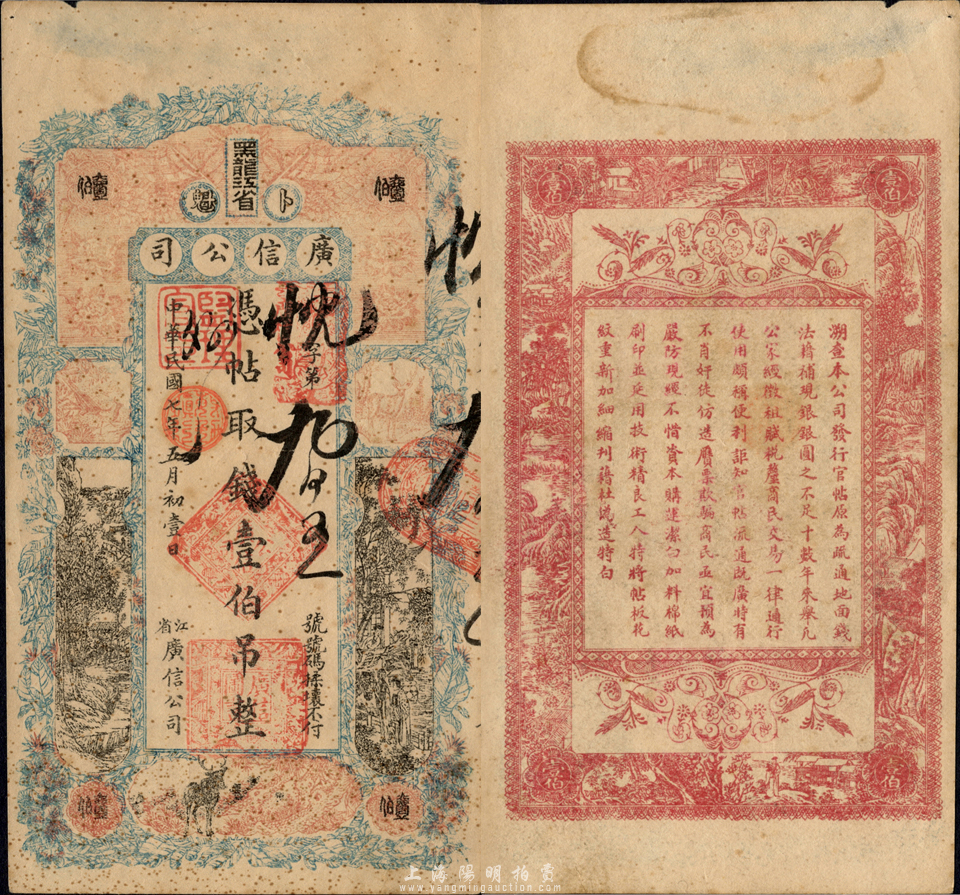 黑龍江省
卜魁
廣信公司
壹佰
壹佰
字第
憑帖取錢壹伯吊整
中華民國七年五月初壹日
號號碼採壞不付
江省廣信公司
壹佰
壹佰
壹佰
壹佰
溯查本公司發行官帖原為疏通地面錢
法藉補現銀銀圓之不足十數年來桼凡
公家經徵租賦稅釐商民交易一律通行
使用頗稱便利詎知官帖流通既廣時有
不肖奸徒仿造贋票欺騙商民亟宜預為
嚴防現經不惜資本購運潔勻加料棉紙
刷印並延用技術精良工人特將帖板花
紋重新加細縮刊藉杜流造特白
壹佰
壹佰
上海陽明拍賣
www.yangmingauction.com